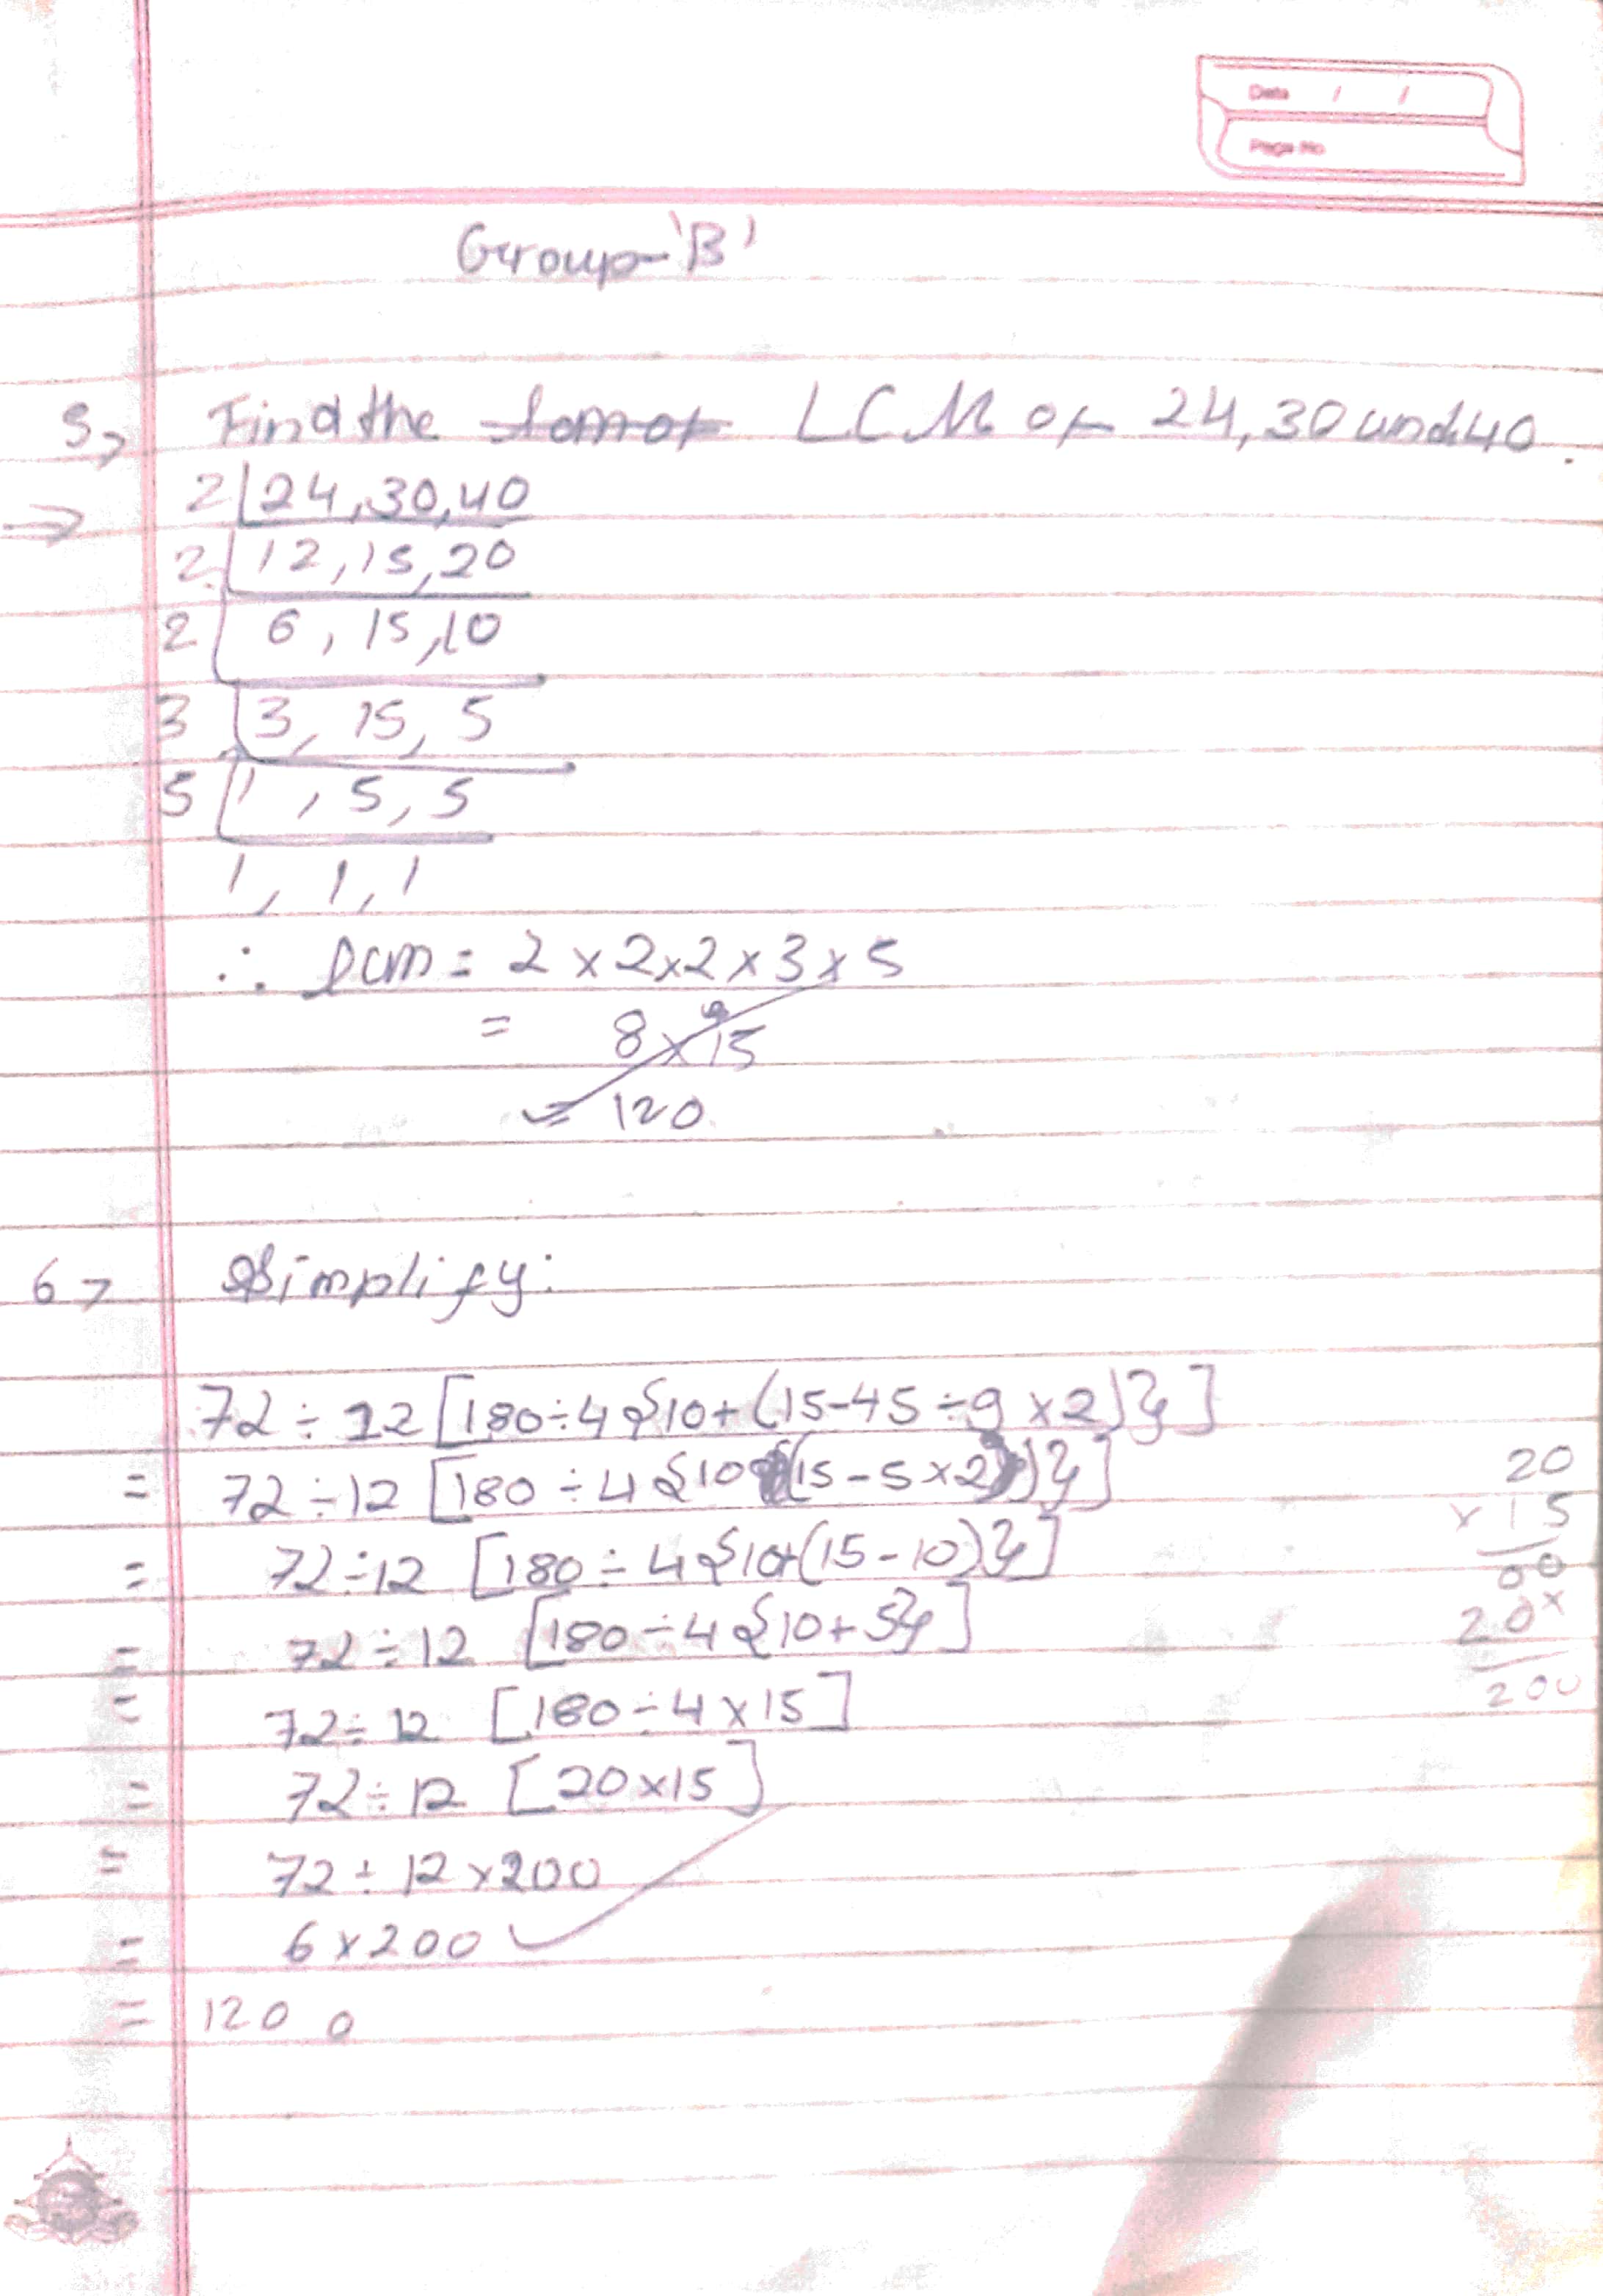 Date / /
Page No
Group-'B'
5> Find the LCM of 24,30 and 40.
⇒ 2 | 24,30,40
2 | 12,15,20
2 | 6, 15,10
3 | 3, 15, 5
5 | 1, 5, 5
1, 1, 1
∴ lcm = 2 x 2 x 2 x 3 x 5
= 8 x 15
= 120
6> Simplify:
72 ÷ 12 [180÷4{10+(15-45÷9 x 2)}]
= 72 ÷ 12 [180 ÷ 4{10+(15-5x2)}]
= 72÷12 [180 ÷ 4{10+(15-10)}]
= 72÷12 [180÷4{10+5}]
= 72÷12 [180÷4 x 15]
= 72÷12 [20x15]
= 72÷12 x 200
= 6 x 200
= 1200
20
x 15
00
20x
200